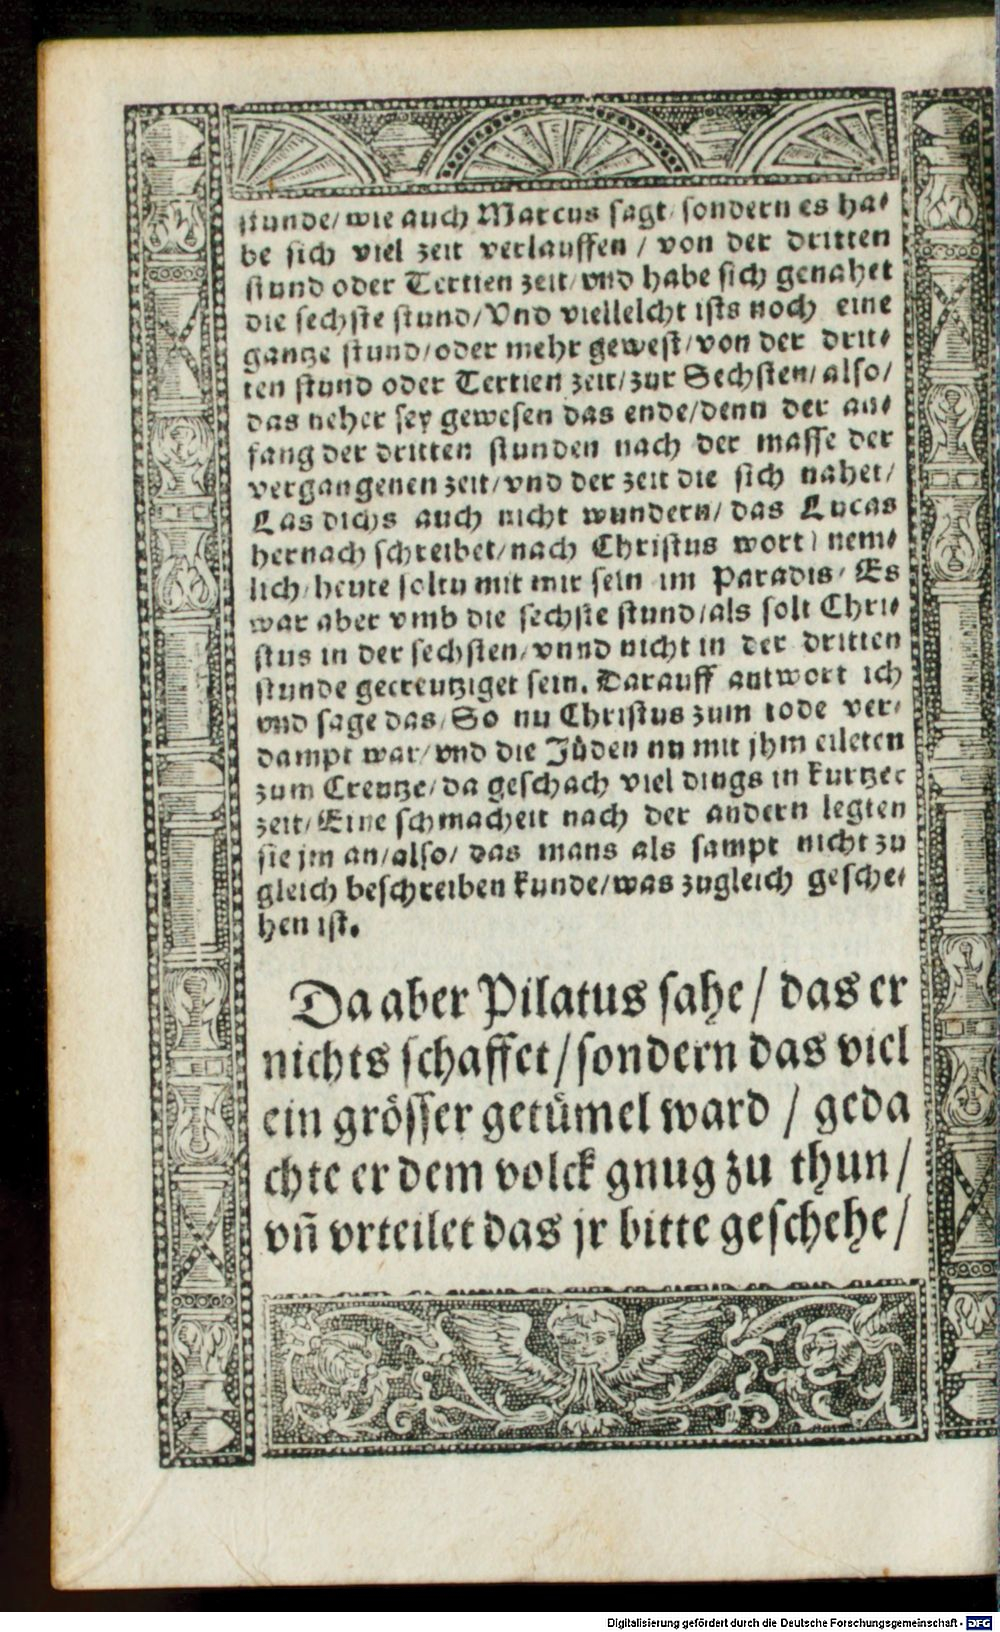 stunde/ wie auch Marcus sagt/ sondern es ha⸗
be sich viel zeit verlauffen / von der dritten
stund oder Tertien zeit/ vnd habe sich genahet
die sechste stund/ Vnd vielleicht ists noch eine
gantze stund/ oder mehr gewest/ von der drit⸗
ten stund oder Tertien zeit/ zur Sechsten/ also/
das neher sey gewesen das ende/ denn der an⸗
fang der dritten stunden nach der masse der
vergangenen zeit/ vnd der zeit die sich nahet/
Las dichs auch nicht wundern/ das Lucas
hernach schreibet/ nach Christus wort) nem⸗
lich/ heute soltu mit mir sein im Paradis/ Es
war aber vmb die sechste stund/ als solt Chri⸗
stus in der sechsten/ vnnd nicht in der dritten
stunde gecreutziget sein. Darauff antwort ich
vnd sage das/ So nu Christus zum tode ver⸗
dampt war/ vnd die Jüden nu mit jhm eileten
zum Creutze/ da geschach viel dings in kurtzer
zeit/ Eine schmacheit nach der andern legten
sie jm an/ also/ das mans als sampt nicht zu
gleich beschreiben kunde/ was zugleich gesche⸗
hen ist.
Da aber Pilatus sahe/ das er
nichts schaffet/ sondern das viel
ein grösser getümel ward / geda
chte er dem volck gnug zu thun/
vñ vrteilet das jr bitte geschehe/
Digitalisierung gefördert durch die Deutsche Forschungsgemeinschaft - DFG